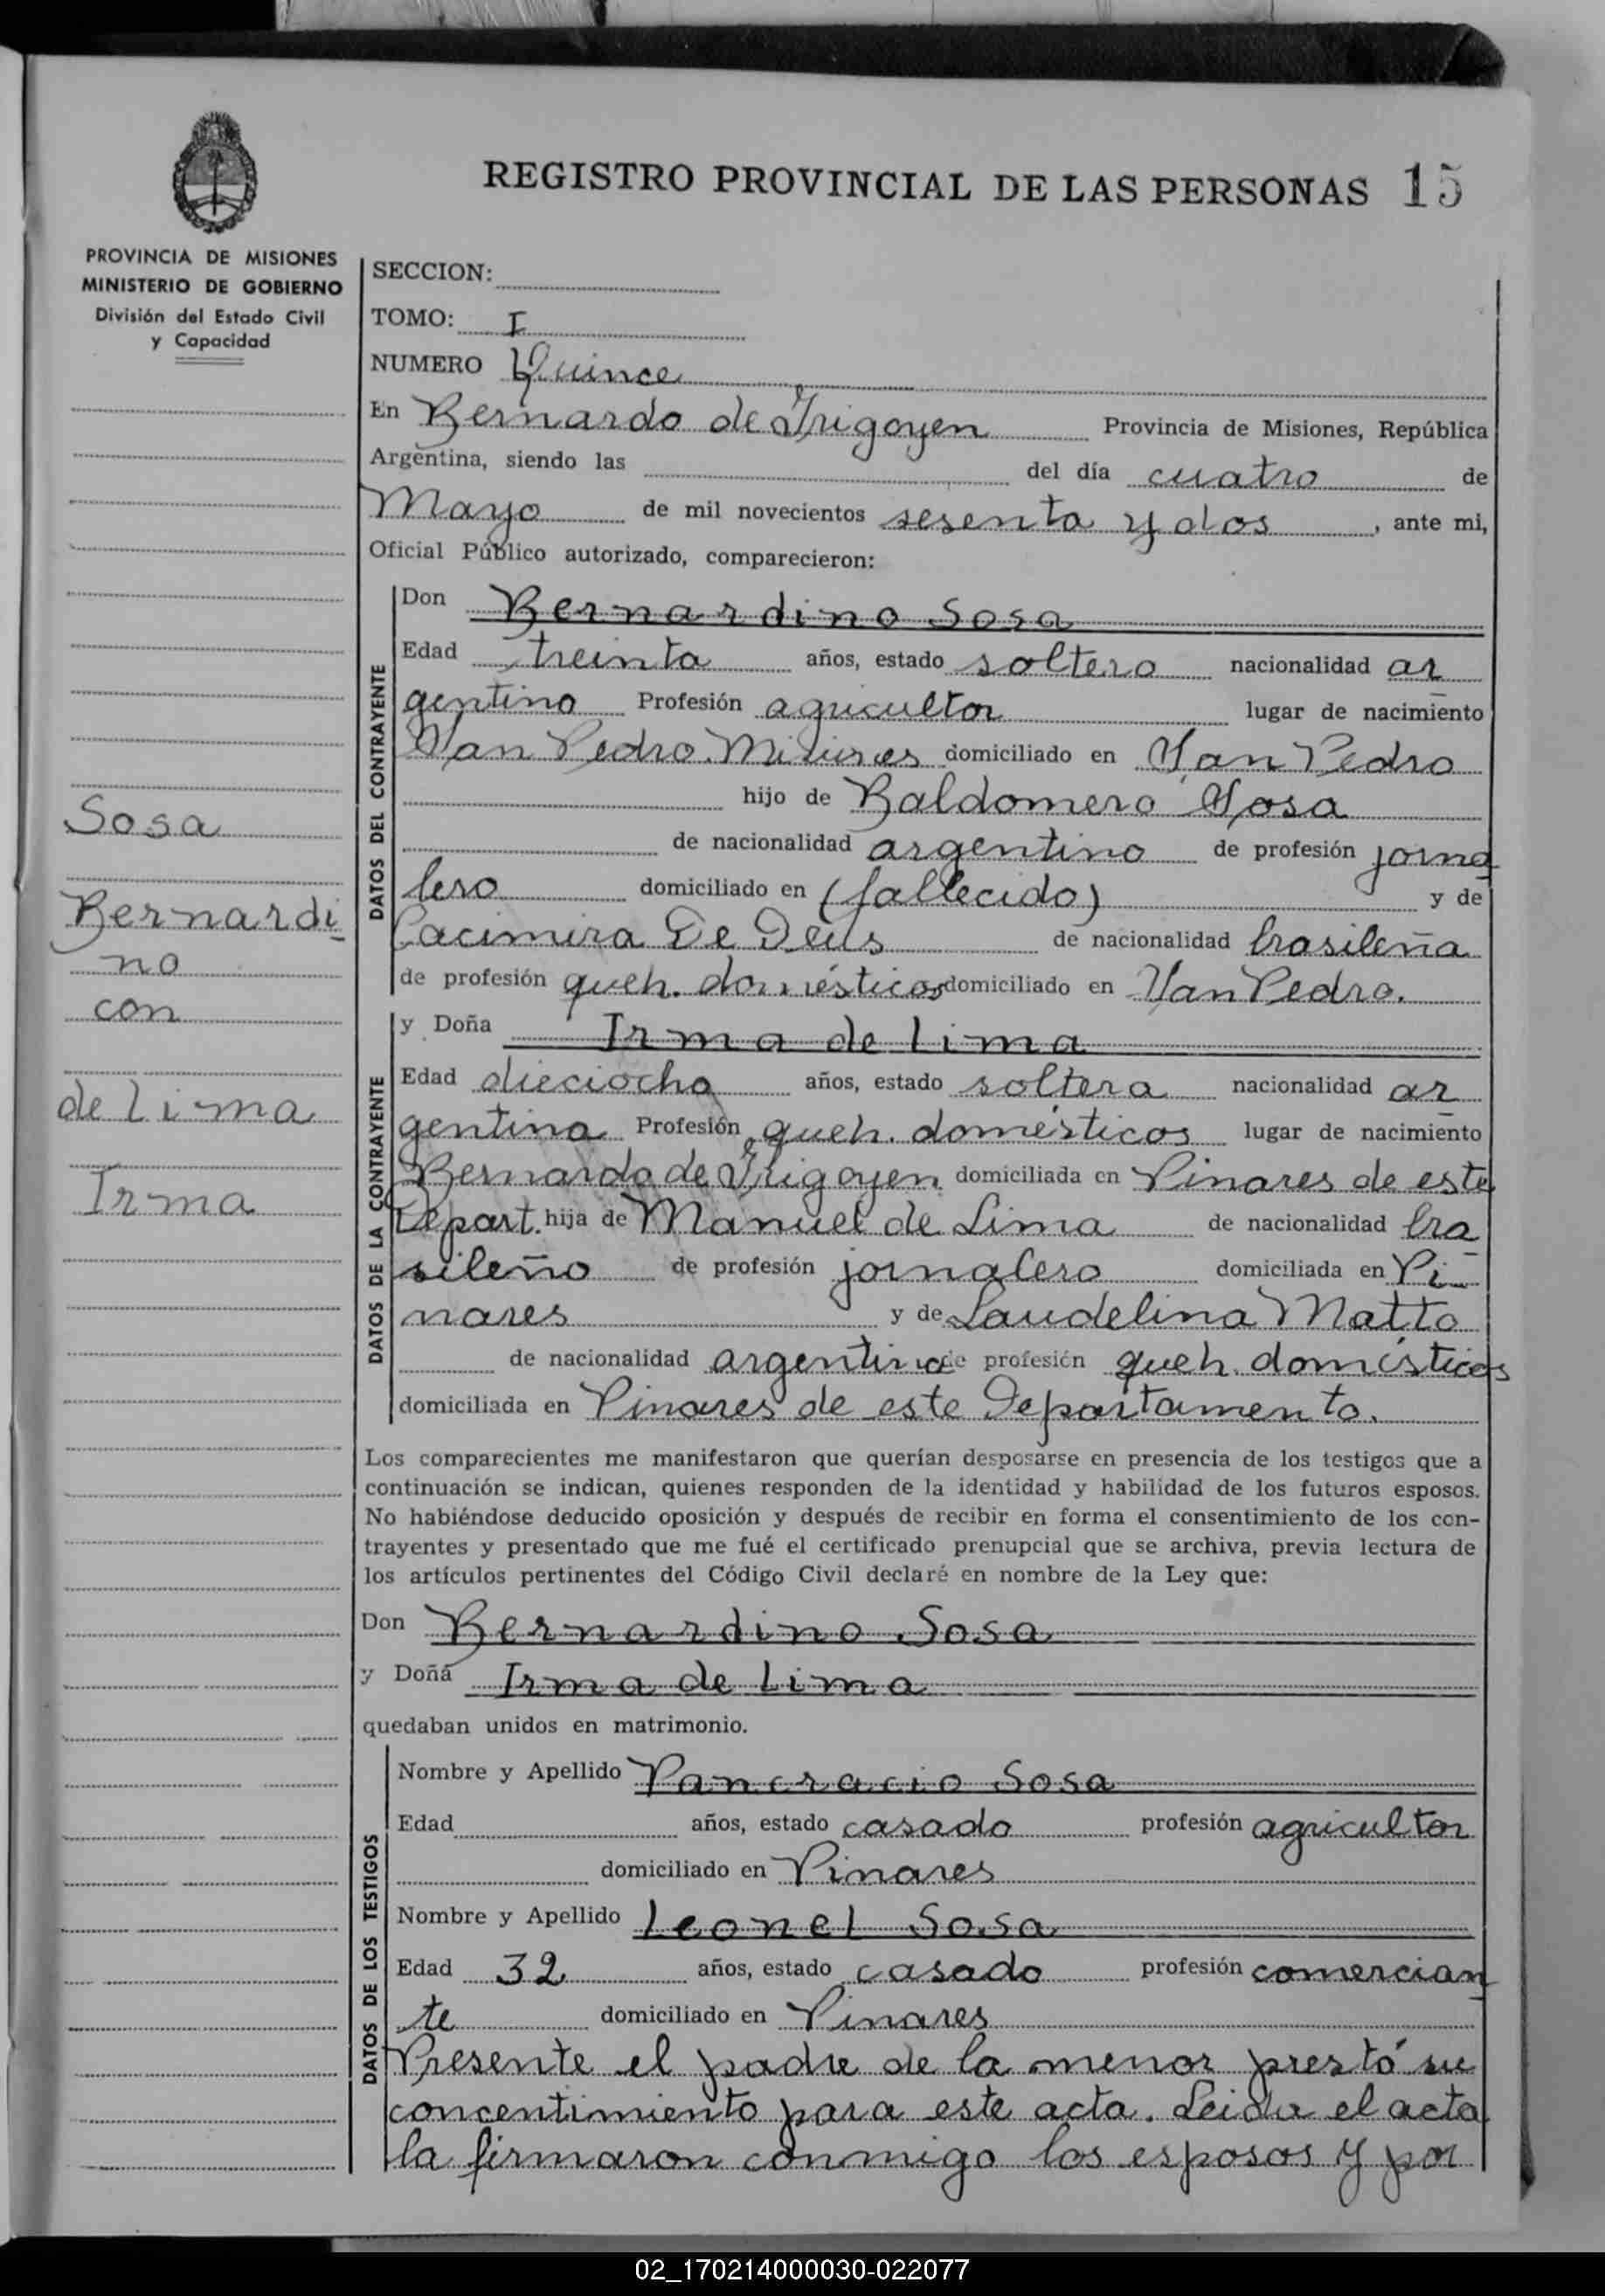 REGISTRO PROVINCIAL DE LAS PERSONAS 15
PROVINCIA DE MISIONES
MINISTERIO DE GOBIERNO
División del Estado Civil
y Capacidad
Sosa
Bernardi
no
con
de Lima
Irma
SECCION:
TOMO: I
NUMERO Quince
En Bernardo de Irigoyen Provincia de Misiones, República
Argentina, siendo las del día cuatro de
Mayo de mil novecientos sesenta y dos, ante mi,
Oficial Público autorizado, comparecieron:
DATOS DEL CONTRAYENTE
Don Bernardino Sosa
Edad treinta años, estado soltero nacionalidad ar
gentino Profesión agricultor lugar de nacimiento
San Pedro. Misiones domiciliado en San Pedro
hijo de Baldomero Sosa
de nacionalidad argentino de profesión jorna
lero domiciliado en (fallecido) y de
Cacimira De Deus de nacionalidad brasileña
de profesión queh. domésticos domiciliado en San Pedro.
DATOS DE LA CONTRAYENTE
y Doña Irma de Lima
Edad dieciocho años, estado soltera nacionalidad ar
gentina Profesión queh. domésticos lugar de nacimiento
Bernardo de Irigoyen domiciliada en Pinares de este
Depart. hija de Manuel de Lima de nacionalidad bra
sileño de profesión jornalero domiciliada en Pi
nares y de Laudelina Matto
de nacionalidad argentina de profesión queh. domésticos
domiciliada en Pinares de este Departamento.
Los comparecientes me manifestaron que querían desposarse en presencia de los testigos que a
continuación se indican, quienes responden de la identidad y habilidad de los futuros esposos.
No habiéndose deducido oposición y después de recibir en forma el consentimiento de los con-
trayentes y presentado que me fué el certificado prenupcial que se archiva, previa lectura de
los artículos pertinentes del Código Civil declaré en nombre de la Ley que:
Don Bernardino Sosa
y Doña Irma de Lima
quedaban unidos en matrimonio.
DATOS DE LOS TESTIGOS
Nombre y Apellido Pancracio Sosa
Edad años, estado casado profesión agricultor
domiciliado en Pinares
Nombre y Apellido Leonel Sosa
Edad 32 años, estado casado profesión comercian
te domiciliado en Pinares
Presente el padre de la menor prestó su
concentimiento para este acta. Leida el acta
la firmaron conmigo los esposos y por
02_170214000030-022077